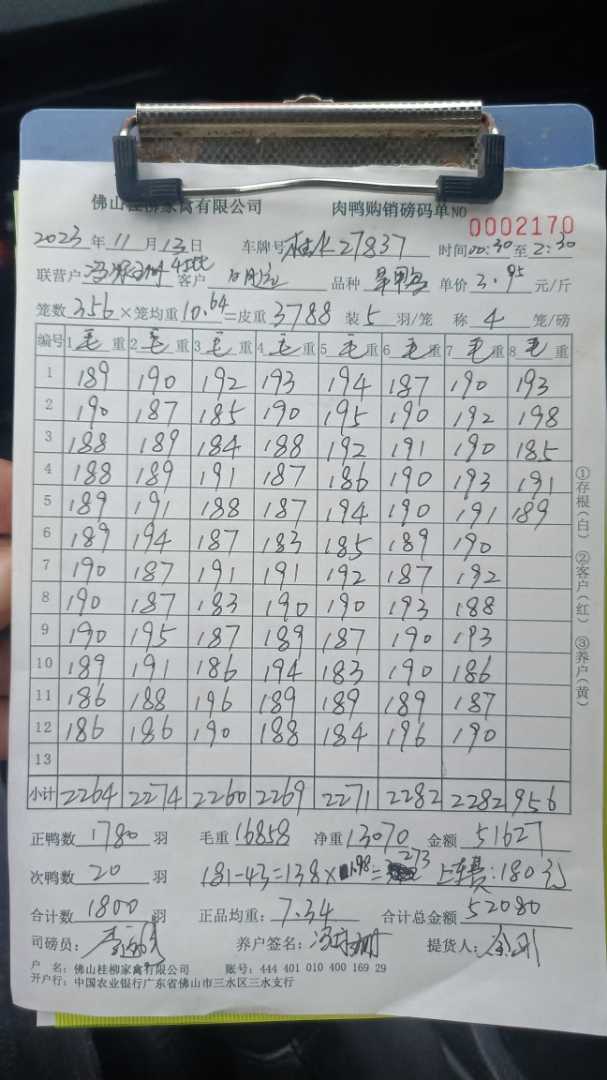 佛山桂柳家禽有限公司 肉鸭购销磅码单 NO 0002170
2023 年 11 月 13 日 车牌号 桂K27837 时间 00:30 至 2:30
联营户 客户 品种 单价 3.95 元/斤
笼数 356 × 笼均重 10.64 = 皮重 3788 装 5 羽/笼 称 4 笼/磅
编号 1 毛 重 2 毛 重 3 毛 重 4 毛 重 5 毛 重 6 毛 重 7 毛 重 8 毛 重
1 189 190 192 193 194 187 190 193
2 190 187 185 190 195 190 192 198
3 188 189 184 188 192 191 190 185
4 188 189 191 187 186 190 193 191
5 189 191 188 187 194 190 191 189
6 189 194 187 183 185 189 190
7 190 187 191 191 192 187 192
8 190 187 183 190 190 193 188
9 190 195 187 189 187 190 193
10 189 191 186 194 183 190 186
11 186 188 196 189 189 189 187
12 186 186 190 188 184 196 190
13
小计 2264 2274 2260 2269 2271 2282 2282 956
①存根(白) ②客户(红) ③养户(黄)
正鸭数 1780 羽 毛重 16858 净重 13070 金额 51627
次鸭数 20 羽 181-43=138× 1.98 = 273 上车费:180元
合计数 1800 羽 正品均重: 7.34 合计总金额 52080
司磅员: 养户签名: 提货人:
户 名: 佛山桂柳家禽有限公司 账号: 444 401 010 400 169 29
开户行: 中国农业银行广东省佛山市三水区三水支行